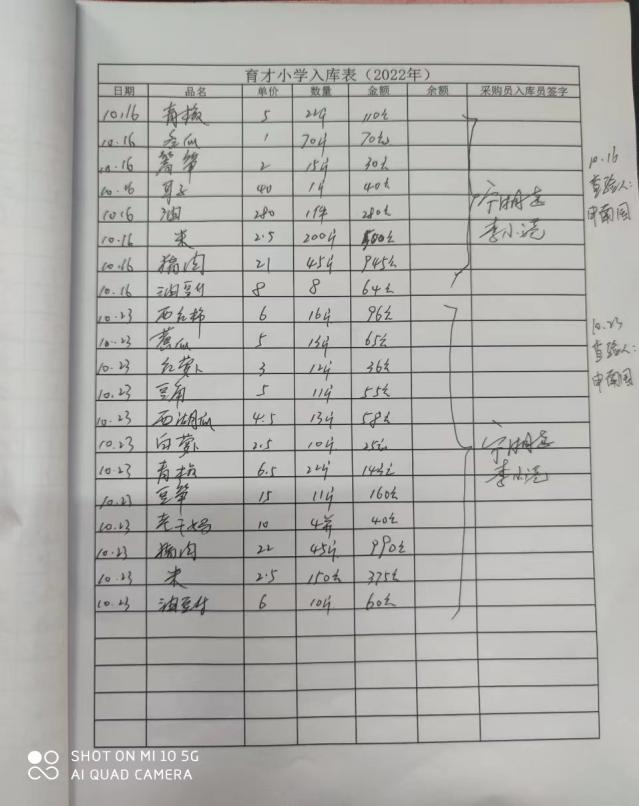 育才小学入库表（2022年）
日期 品名 单价 数量 金额 余额 采购员入库员签字
10.16 青椒 5 22斤 110元
10.16 冬瓜 1 70斤 70元
10.16 窝笋 2 15斤 30元
10.16 耳子 40 1斤 40元
10.16 油 280 1件 280元
10.16 米 2.5 200斤 500元
10.16 猪肉 21 45斤 945元
10.16 油豆付 8 8 64元
10.23 西红柿 6 16斤 96元
10.23 黄瓜 5 13斤 65元
10.23 红萝卜 3 12斤 36元
10.23 豆角 5 11斤 55元
10.23 西湖瓜 4.5 13斤 58元
10.23 白萝卜 2.5 10斤 25元
10.23 青椒 6.5 22斤 143元
10.23 豆笋 15 11斤 160元
10.23 老干妈 10 4瓶 40元
10.23 猪肉 22 45斤 990元
10.23 米 2.5 150斤 375元
10.23 油豆付 6 10斤 60元
李小洁
10.16
查验人:
申南国
李小洁
10.23
查验人:
申南国
SHOT ON MI 10 5G
AI QUAD CAMERA